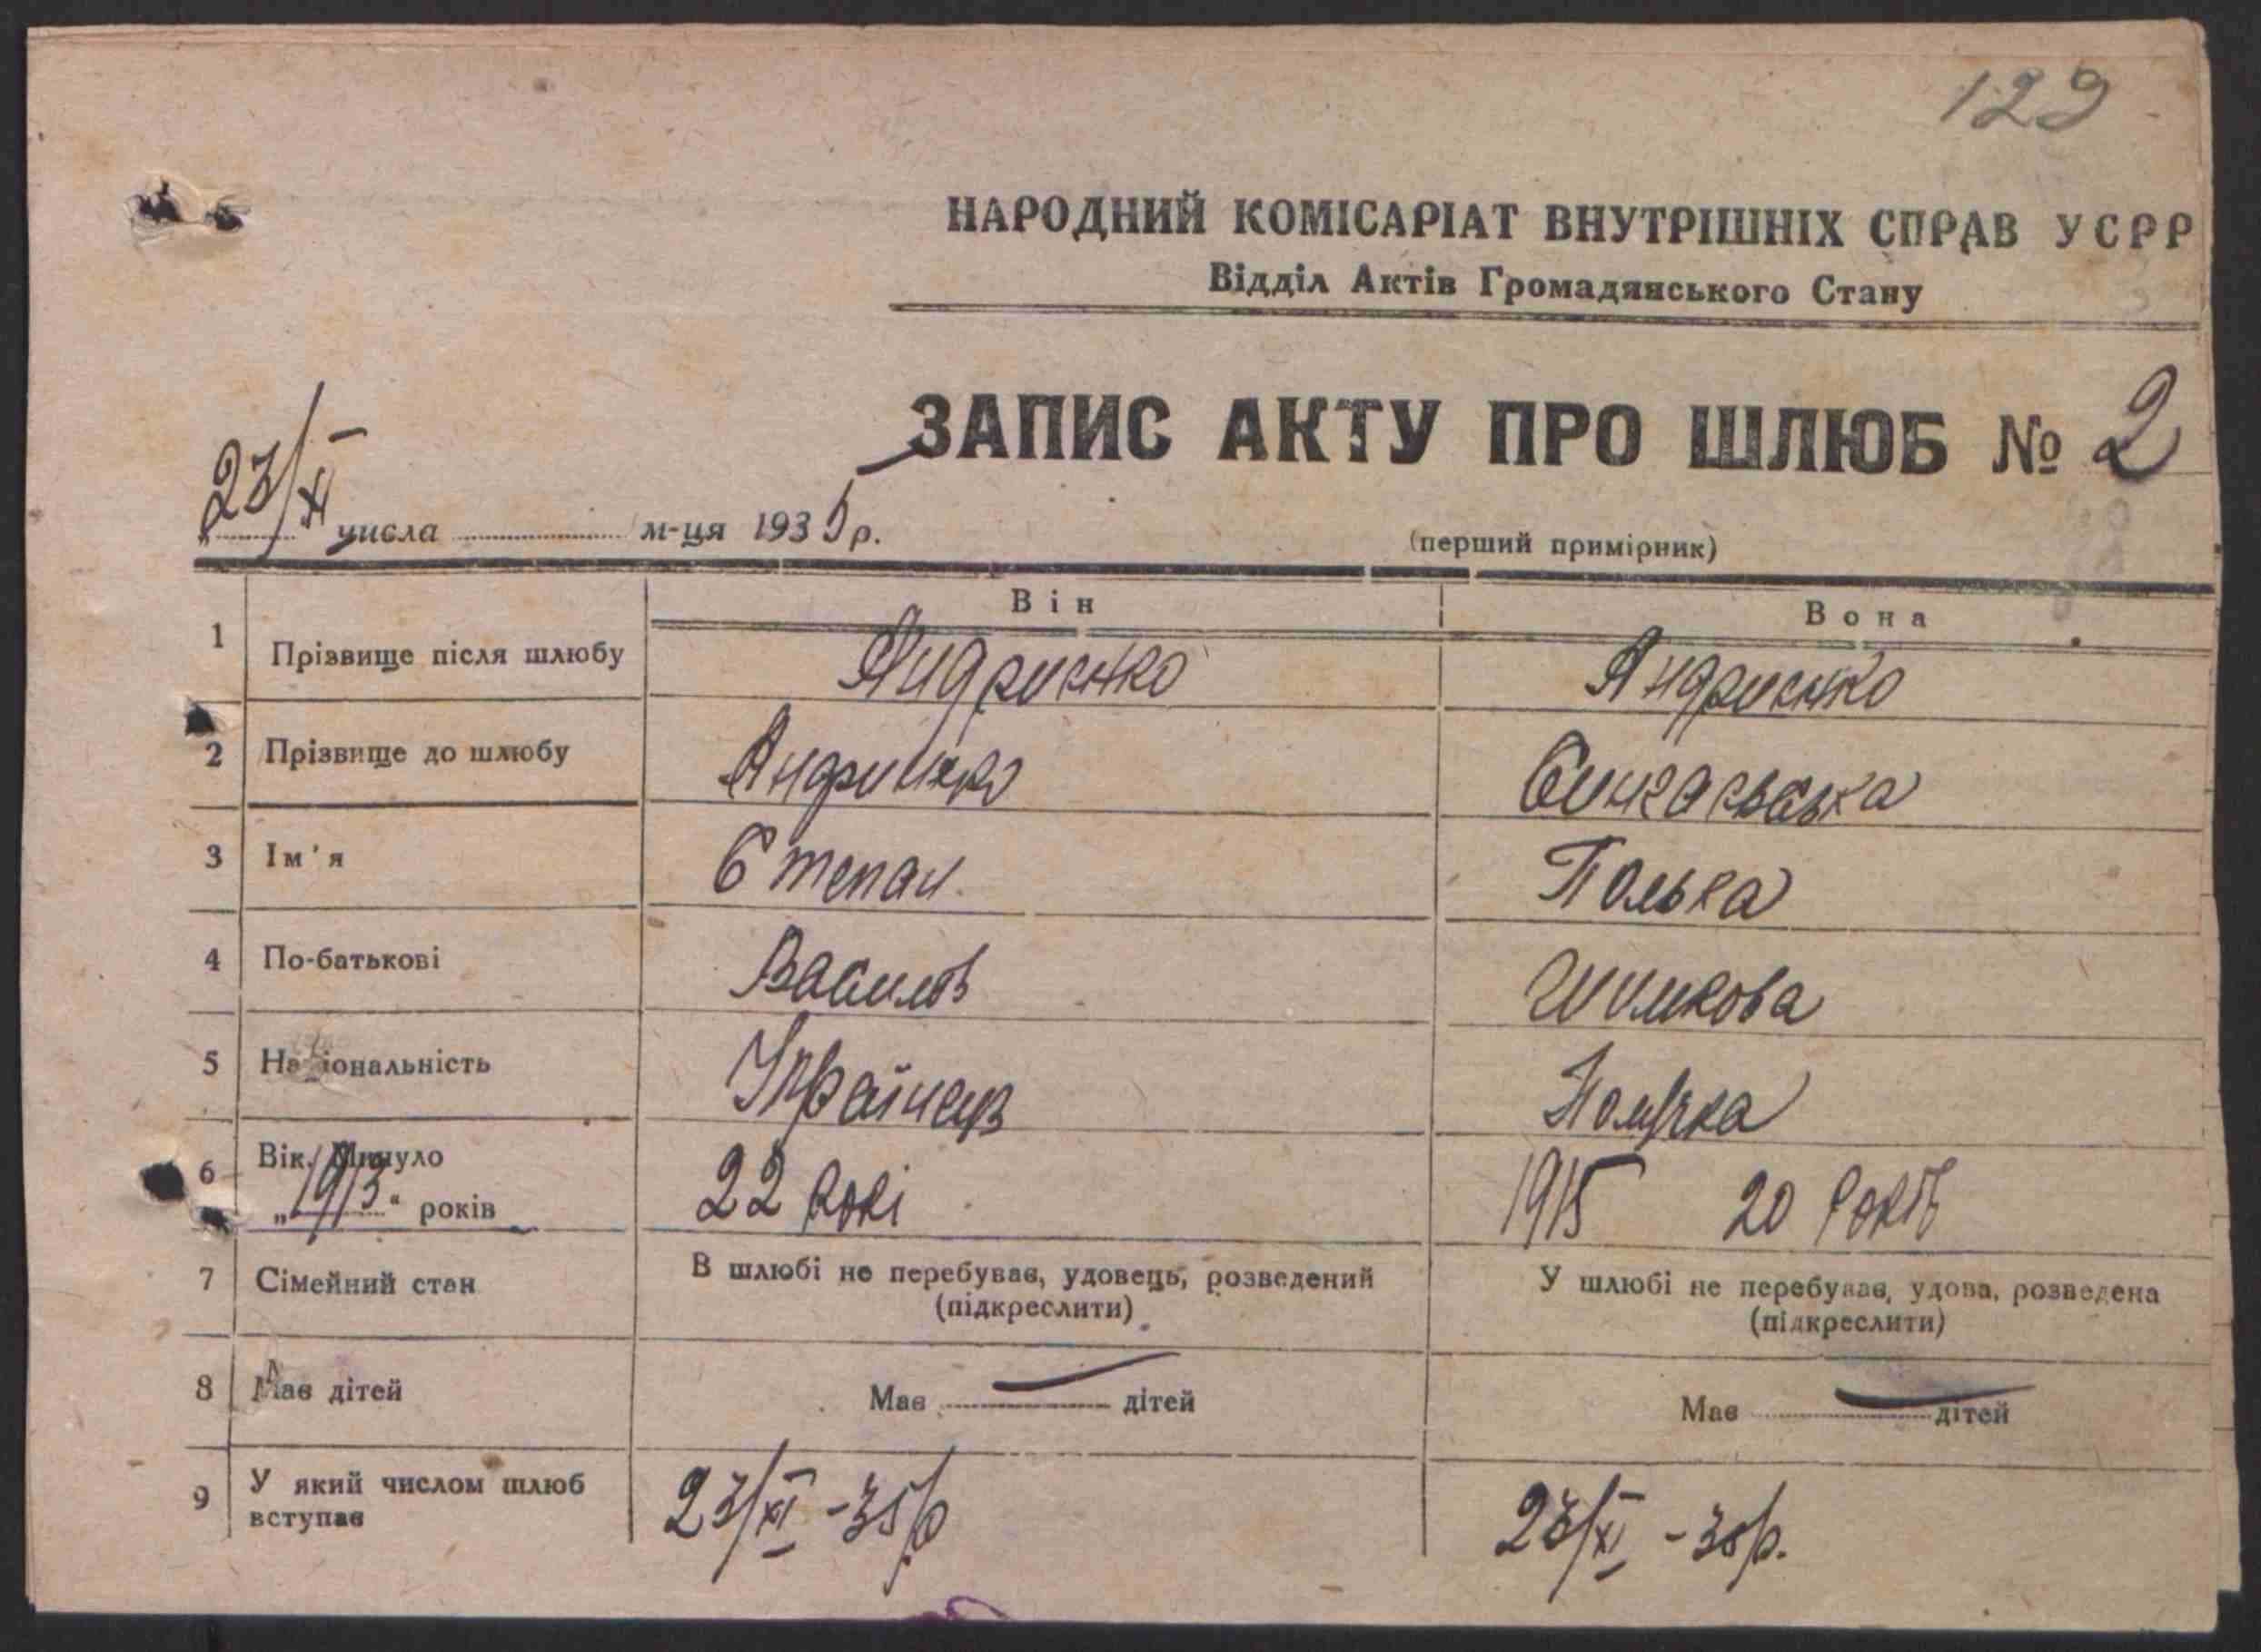 129
НАРОДНИЙ КОМІСАРІАТ ВНУТРІШНІХ СПРАВ УСРР
Відділ Актів Громадянського Стану
ЗАПИС АКТУ ПРО ШЛЮБ № 2
„23/XI числа м-ця 1935 р.
(перший примірник)
Він Вона
1 Прізвище після шлюбу Андриенко Андриенко
2 Прізвище до шлюбу Андриенко
3 Ім'я Степан Полька
4 По-батькові Василів Шимкова
5 Національність Українець Полячка
6 Вік. Минуло „1913“ років 22 рокі 1915 20 років
7 Сімейний стан В шлюбі не перебував, удовець, розведений (підкреслити) У шлюбі не перебував, удова, розведена (підкреслити)
8 Має дітей Має — дітей Має — дітей
9 У який числом шлюб вступає 23/XI -35р 23/XI -35р.